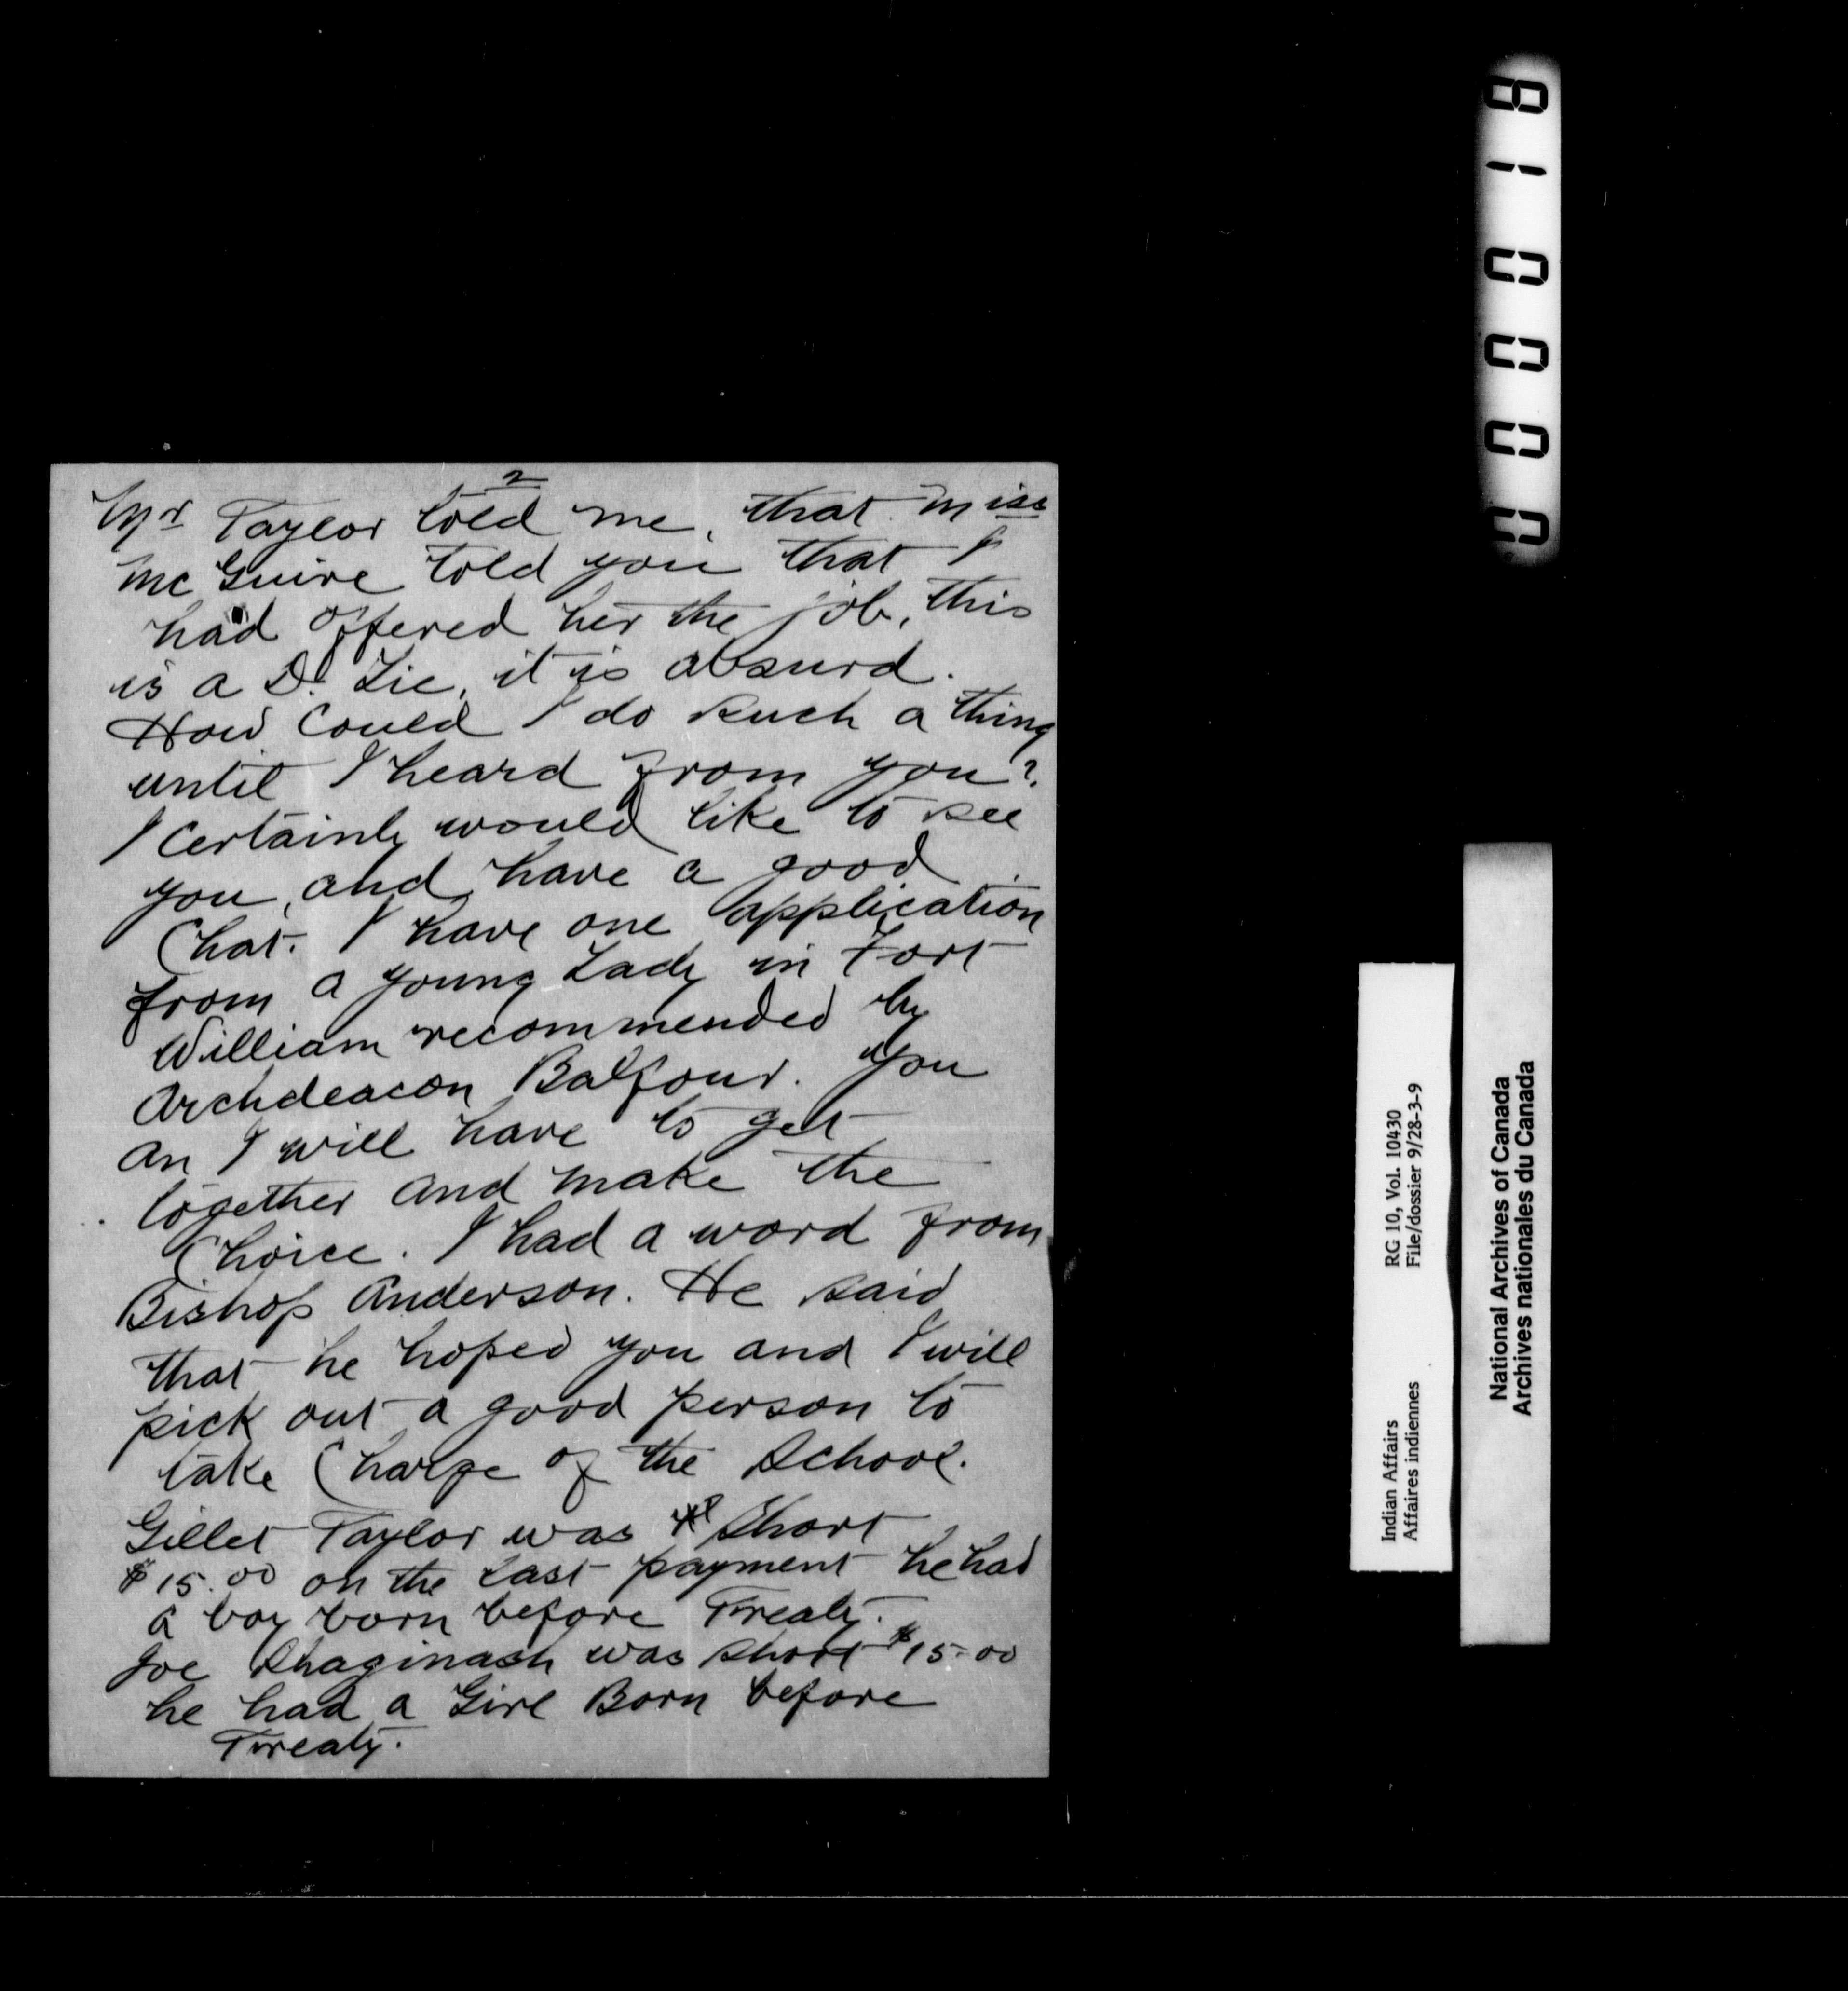 2
Mr Taylor told me, that Miss
McGuire told you that I
had offered her the job, this
is a D. Lie, it is absurd.
How Could I do such a thing
until I heard from you?
I Certainly would like to see
you, and have a good
Chat. I have one application
from a young Lady in Fort
William recommended by
Archdeacon Balfour. You
an I will have to get
together and make the
Choice. I had a word from
Bishop Anderson. He said
that he hoped you and I will
pick out a good person to
take Charge of the School.
Gillet Taylor was Short
$15.00 on the last payment he had
a boy born before Treaty.
Joe Shaginash was short $15.00
he had a Girl Born before
Treaty.
000018
Indian Affairs RG 10, Vol. 10430
Affaires indiennes File/dossier 9/28-3-9
National Archives of Canada
Archives nationales du Canada